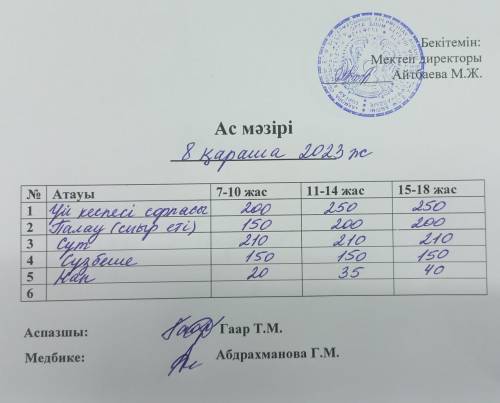 Бекітемін:
Мектеп директоры
Айтбаева М.Ж.
Ас мәзірі
8 қараша 2023 ж
№ Атауы 7-10 жас 11-14 жас 15-18 жас
1 Үй кеспесі сорпасы 200 250 250
2 Палау (сиыр еті) 150 200 200
3 Сүт 210 210 210
4 Сүзбеше 150 150 150
5 Нан 20 35 40
6
Аспазшы: Гаар Т.М.
Медбике: Абдрахманова Г.М.